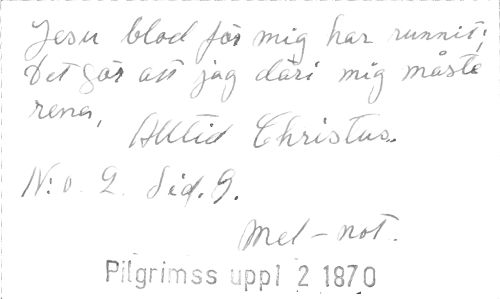 Jesu blod för mig har runnit;
Det gör att jag däri mig måste
rena,
Alltid Christus.
N:o. 2. Sid. 9.
Mel-not.
Pilgrimss uppl 2 1870